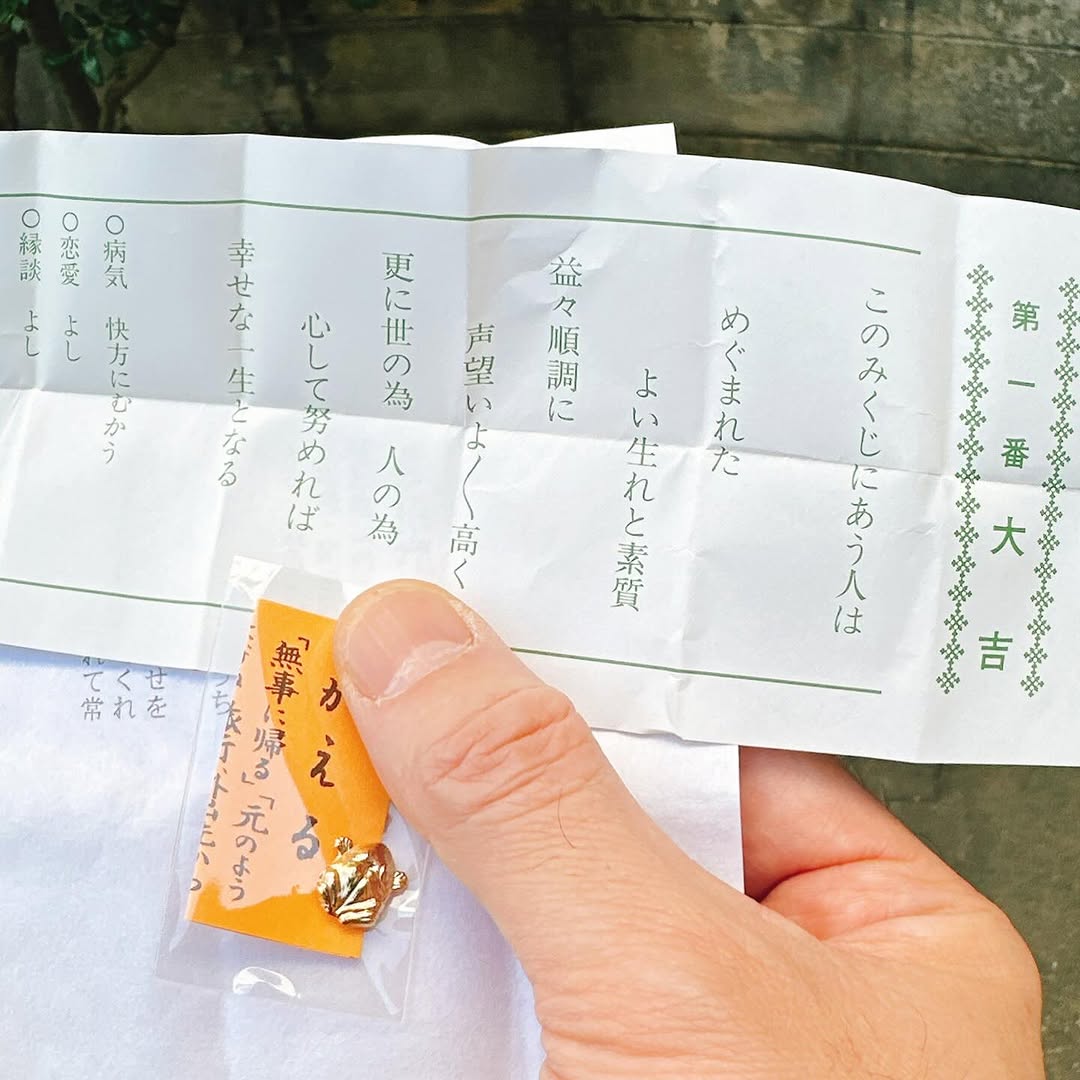 第一番 大吉
このみくじにあう人は
めぐまれた
よい生れと素質
益々順調に
声望いよ〱高く
更に世の為 人の為
心して努めれば
幸せな一生となる
○病気 快方にむかう
○恋愛 よし
○縁談 よし
かえる
「無事に帰る」「元のよう
せを
くれ
れて常